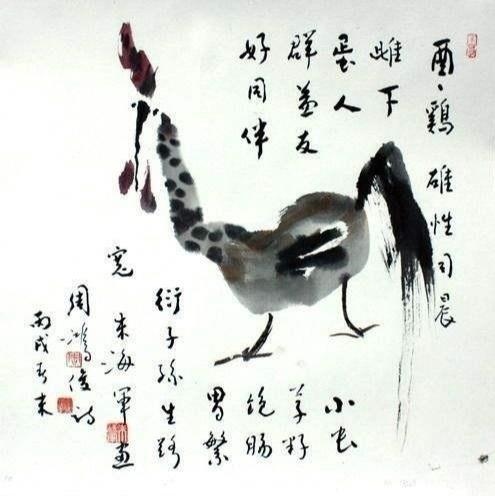 酉、鷄 雄性司晨
雌下
蛋人
群益友
好同伴
小虫
草籽
饱肠
胃繁
衍子孫生路
宽 朱海軍画
周鴻俊詩
丙戌春末